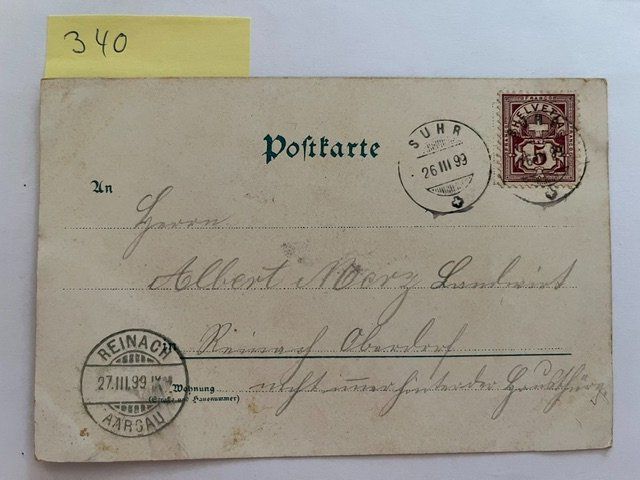 340
Postkarte
SUHR
26 III 99
FRANCO
HELVETIA
5
An
Herrn
Albert Merz Landwirt
in Reinach Oberdorf
REINACH
27.III.99
AARGAU
Wohnung
(Straße und Hausnummer)
nicht hinter der